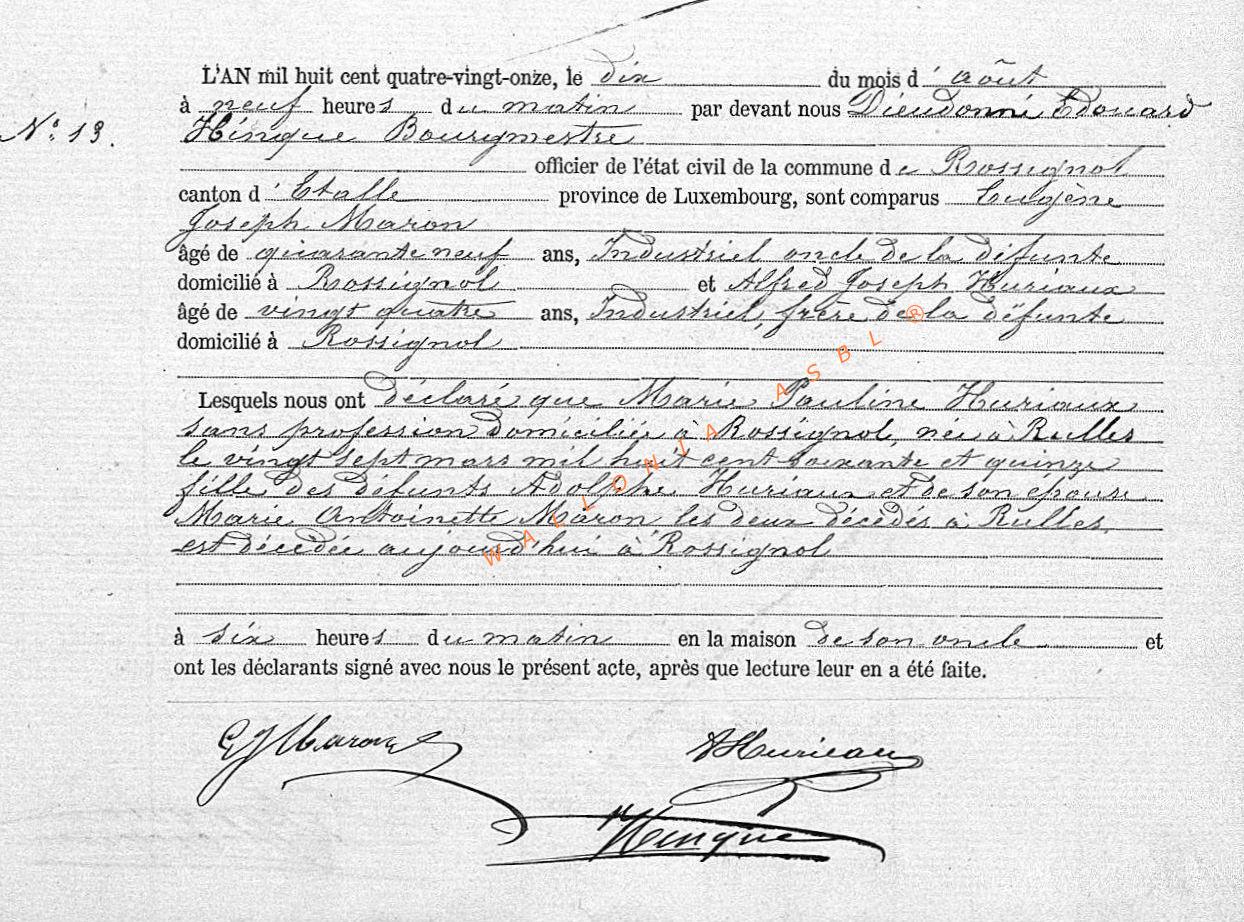 L'AN mil huit cent quatre-vingt-onze, le dix du mois d'août
à neuf heures du matin par devant nous Dieudonné Edouard
N° 13. Hinque Bourgmestre
officier de l'état civil de la commune de Rossignol
canton d'Etalle province de Luxembourg, sont comparus Eugène
Joseph Maron
âgé de quarante neuf ans, Industriel oncle de la défunte
domicilié à Rossignol et Alfred Joseph Huriaux
âgé de vingt quatre ans, Industriel, frère de la défunte
domicilié à Rossignol
Lesquels nous ont déclaré que Marie Pauline Huriaux
sans profession domiciliée à Rossignol, née à Rulles
le vingt sept mars mil huit cent soixante et quinze
fille des défunts Adolphe Huriaux et de son épouse
Marie Antoinette Maron, les deux décédés à Rulles,
est décédée aujourd'hui à Rossignol
à six heures du matin en la maison de son oncle et
ont les déclarants signé avec nous le présent acte, après que lecture leur en a été faite.
EJMaron AHurieaux
Hinque
WALLONIA ASBL ®